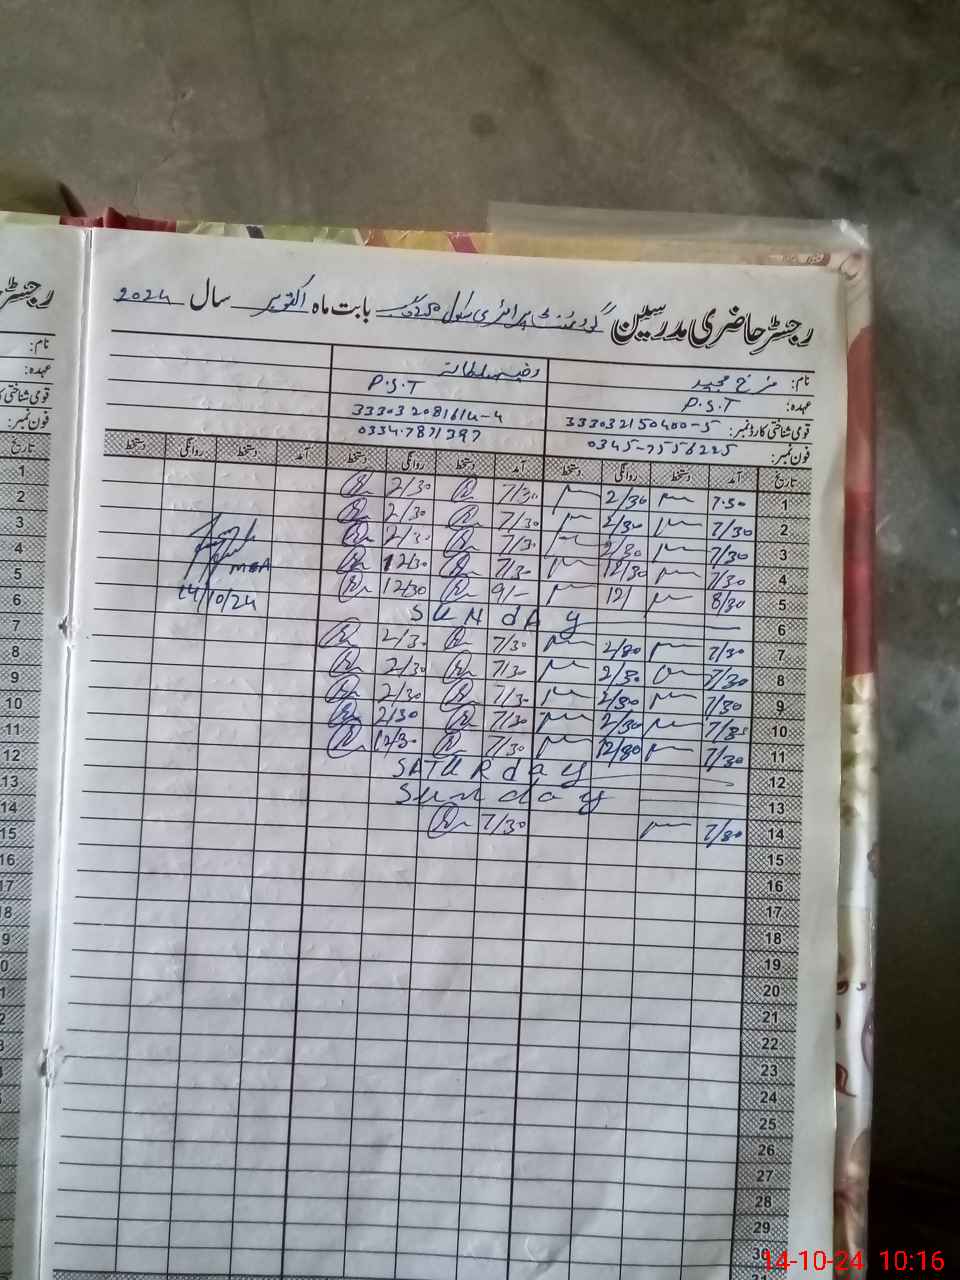 رجسٹر حاضری مدرسین گورنمنٹ پرائمری سکول بابت ماہ اکتوبر سال 2024
نام: فرخ مجید
عہدہ: P.S.T P.S.T
قومی شناختی کارڈ نمبر: 333032150400-5 333032081614-4
فون نمبر: 0345-7556225 0334-7871397
تاریخ آمد دستخط روانگی دستخط آمد دستخط روانگی دستخط آمد دستخط روانگی دستخط
1 7.30 2/30 7/30 2/30
2 7/30 2/30 7/30 2/30
3 7/30 2/30 7/30 2/30
4 7/30 12/30 7/30 12/30
5 8/30 12/ 9/- 12/30
6 SUNdAy
7 7/30 2/30 7/30 2/30
8 7/30 2/30 7/30 2/30
9 7/30 2/30 7/30 2/30
10 7/30 2/30 7/30 2/30
11 7/30 12/30 7/30 12/30
12 SATURday
13 Sunday
14 7/30 7/30
15
16
17
18
19
20
21
22
23
24
25
26
27
28
29
30
MEA
14/10/24
14-10-24 10:16